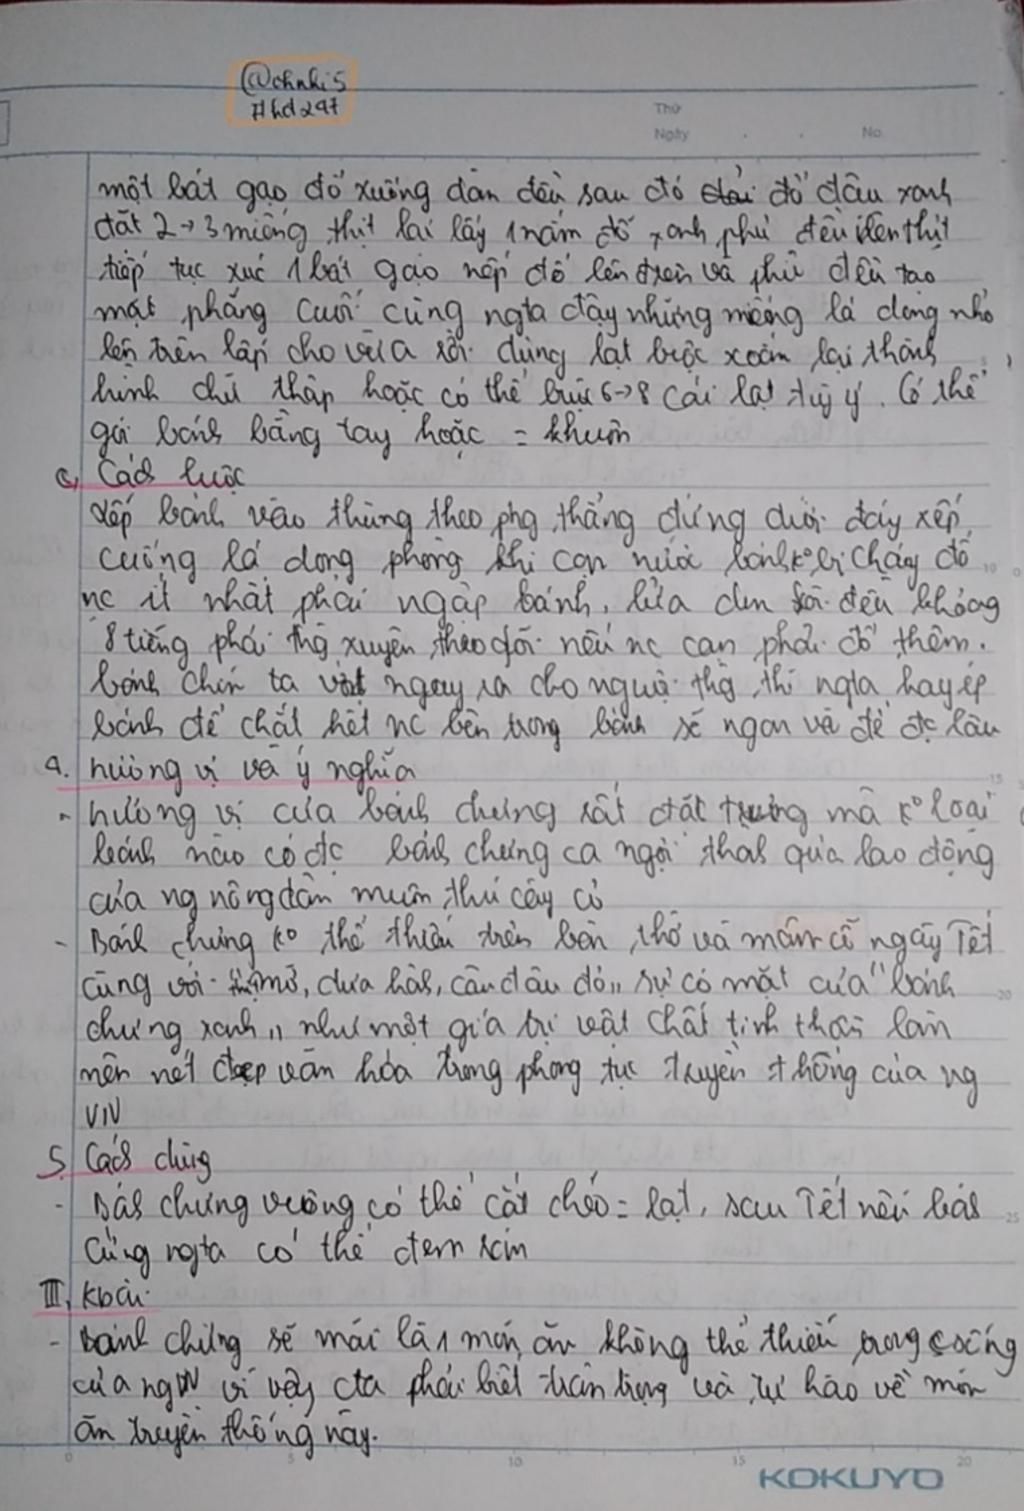 @chnhi5
#hd247
Thứ
Ngày . . No.
một bát gạo đổ xuống dàn đều sau đó đổ đậu xanh
đặt 2→3 miếng thịt lại lấy 1 nắm đỗ xanh phủ đều lên thịt
tiếp tục xúc 1 bát gạo nếp đổ lên trên và phủ đều tạo
mặt phẳng cuối cùng ngta đậy những miếng lá dong nhỏ
lên trên lấp cho vừa rồi dùng lạt buộc xoắn lại thành
hình chữ thập hoặc có thể buộc 6→8 cái lạt tùy ý. Có thể
gói bánh bằng tay hoặc = khuôn
c, Cách luộc
xếp bánh vào thùng theo phg thẳng đứng dưới đáy xếp
cuống lá dong phòng khi cạn nước bánh k° bị cháy đổ
nc ít nhất phải ngập bánh, lửa đun sôi đều khoảng
8 tiếng phải thg xuyên theo dõi nếu nc cạn phải đổ thêm.
bánh chín ta vớt ngay ra cho nguội thg thì ngta hay ép
bánh để chắt hết nc bên trong bánh sẽ ngon và để đc lâu
4. hương vị và ý nghĩa
- hương vị của bánh chưng rất đặc trưng mà k° loại
bánh nào có đc bánh chưng ca ngợi thành quả lao động
của ng nông dân muôn thú cây cỏ
- Bánh chưng k° thể thiếu trên bàn thờ và mâm cỗ ngày Tết
cùng với mỡ, dưa hành, câu đối đỏ,, sự có mặt của "bánh
chưng xanh,, như một giá trị vật chất tinh thần làm
nên nét đẹp văn hóa trong phong tục truyền thống của ng
VN
5. Cách dùng
- Bánh chưng vuông có thể cắt chéo = lạt, sau Tết nếu bánh
cứng ngta có thể đem rán
III, Kbài
- Bánh chưng sẽ mãi là 1 món ăn không thể thiếu trong csống
của ng VN vì vậy cta phải biết trân trọng và tự hào về món
ăn truyền thống này.
0 5 10 15 20
KOKUYO